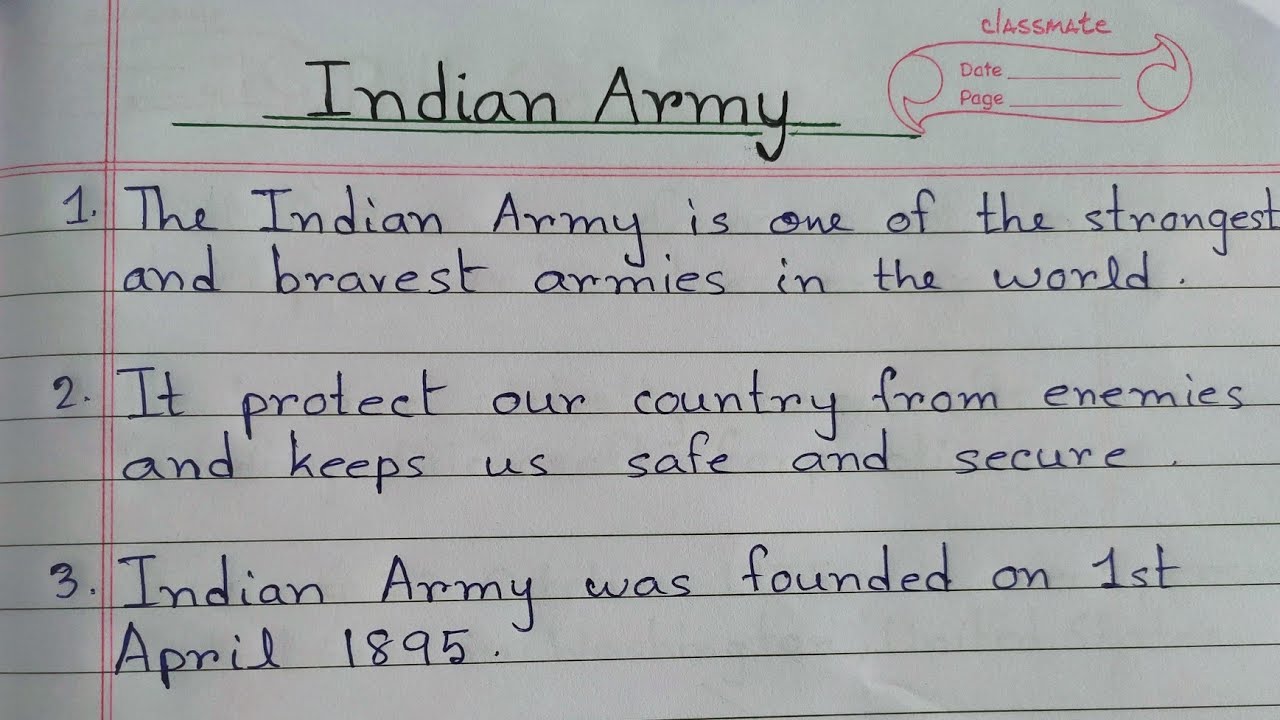 classmate
Date
Page
Indian Army
1. The Indian Army is one of the strongest
and bravest armies in the world.
2. It protect our country from enemies
and keeps us safe and secure.
3. Indian Army was founded on 1st
April 1895.